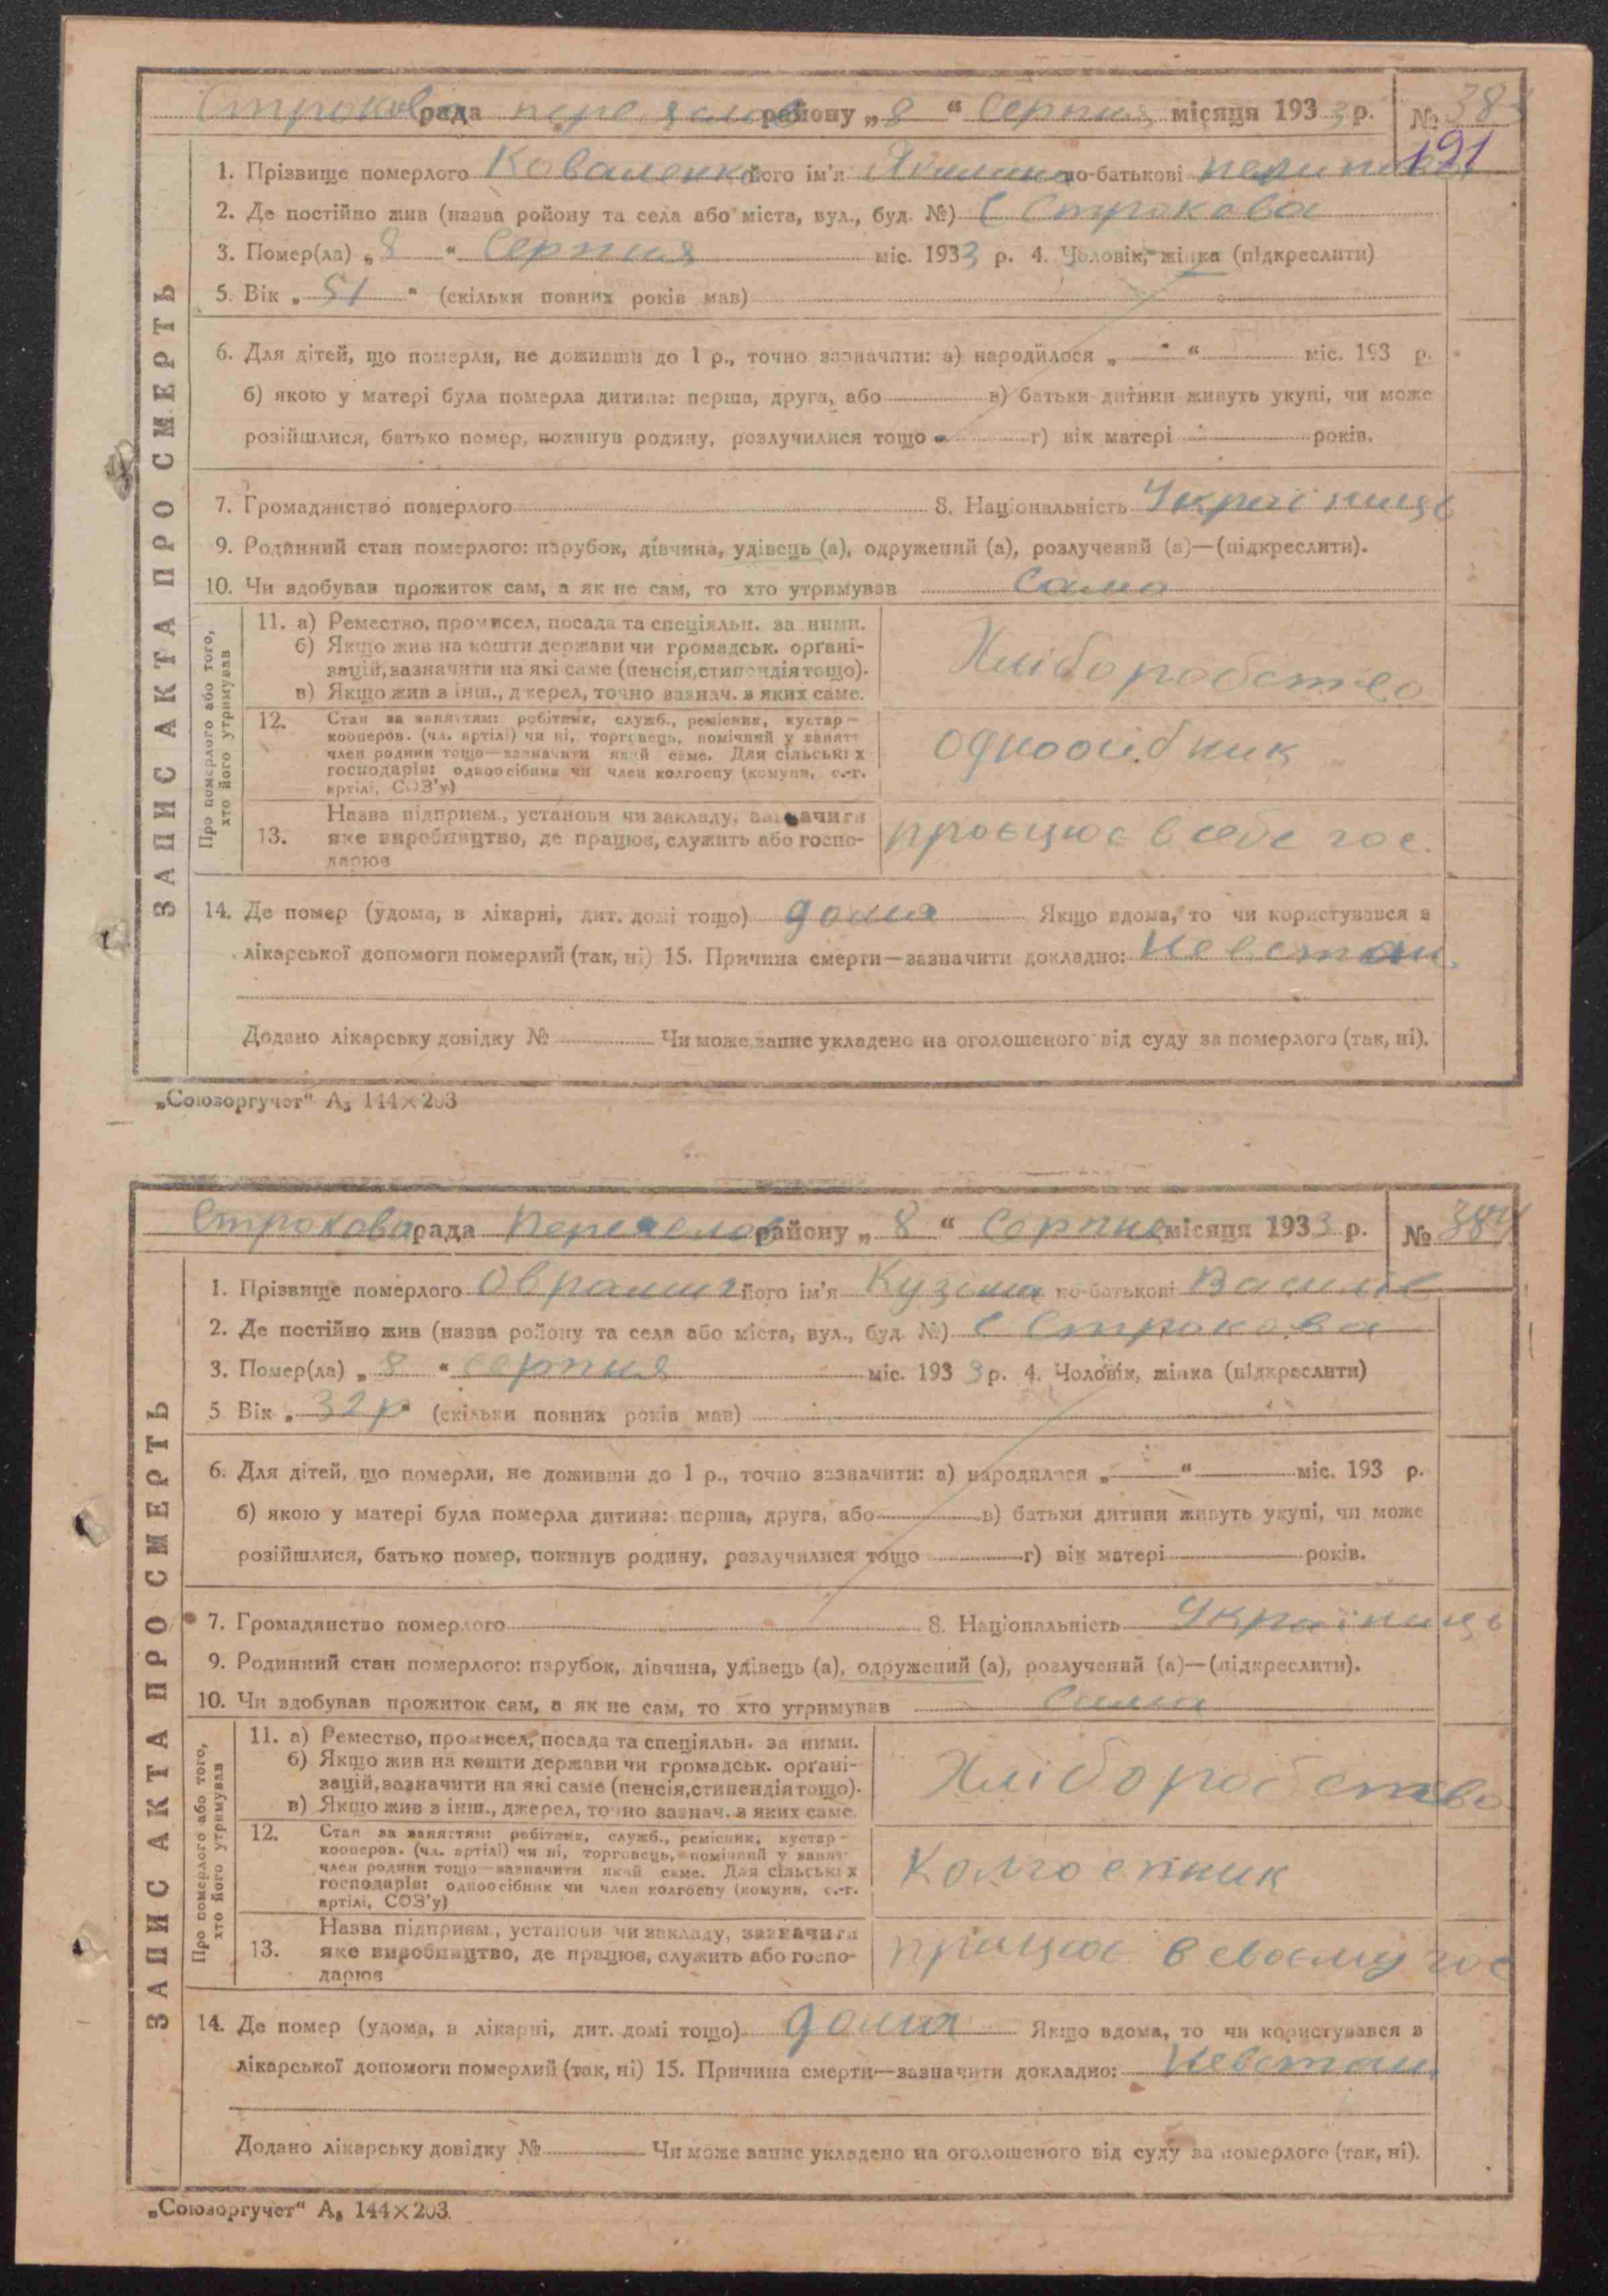 Строкова рада переяслов району „8“ Серпня місяця 1933 р. № 383
191
1. Прізвище померлого Коваленко його ім'я по-батькові
2. Де постійно жив (назва ройону та села або міста, вул., буд. №) С Строкова
3. Помер(ла) „8“ Серпня міс. 1933 р. 4. Чоловік, жінка (підкреслити)
5. Вік „51“ (скільки повних років мав)
6. Для дітей, що померли, не доживши до 1 р., точно зазначити: а) народилося „ “ міс. 193 р.
б) якою у матері була померла дитина: перша, друга, або в) батьки дитини живуть укупі, чи може
розійшлися, батько помер, покинув родину, розлучилися тощо г) вік матері років.
7. Громадянство померлого 8. Національність Українць
9. Родинний стан померлого: парубок, дівчина, удівець (а), одружений (а), розлучений (а)—(підкреслити).
10. Чи здобував прожиток сам, а як не сам, то хто утримував Сама
ЗАПИС АКТА ПРО СМЕРТЬ
Про померлого або того,
хто його утримував
11. а) Ремество, промисел, посада та спеціяльн. за ними.
б) Якщо жив на кошти держави чи громадськ. орґані-
зацій, зазначити на які саме (пенсія, стипендія тощо).
в) Якщо жив з інш., джерел, точно зазнач. з яких саме.
Хліборобство
12. Стан за заняттям: робітник, служб., ремісник, кустар—
кооперов. (чл. артілі) чи ні, торговець, помічний у занятт
член родини тощо—зазначити який саме. Для сільських
господарів: одноосібник чи член колгоспу (комуни, с.-г.
артілі, СОЗ'у)
одноосібник
13. Назва підприєм., установи чи закладу, зазначити
яке виробництво, де працює, служить або госпо-
дарює
працює в себе гос.
14. Де помер (удома, в лікарні, дит. домі тощо) дома Якщо вдома, то чи користувався з
лікарської допомоги померлий (так, ні) 15. Причина смерти—зазначити докладно:
Додано лікарську довідку № Чи може запис укладено на оголошеного від суду за померлого (так, ні).
„Союзоргучет“ А₅ 144×203
Строкова рада Переяслов району „8“ Серпня місяця 1933 р. № 384
1. Прізвище померлого його ім'я Кузьма по-батькові Васильв
2. Де постійно жив (назва ройону та села або міста, вул., буд. №) С Строкова
3. Помер(ла) „8“ серпня міс. 1933 р. 4. Чоловік, жінка (підкреслити)
5 Вік „32 р“ (скільки повних років мав)
6. Для дітей, що померли, не доживши до 1 р., точно зазначити: а) народилося „ “ міс. 193 р.
б) якою у матері була померла дитина: перша, друга, або в) батьки дитини живуть укупі, чи може
розійшлися, батько помер, покинув родину, розлучилися тощо г) вік матері років.
7. Громадянство померлого 8. Національність Українць
9. Родинний стан померлого: парубок, дівчина, удівець (а), одружений (а), розлучений (а)—(підкреслити).
10. Чи здобував прожиток сам, а як не сам, то хто утримував
ЗАПИС АКТА ПРО СМЕРТЬ
Про померлого або того,
хто його утримував
11. а) Ремество, промисел, посада та спеціяльн. за ними.
б) Якщо жив на кошти держави чи громадськ. орґані-
зацій, зазначити на які саме (пенсія, стипендія тощо).
в) Якщо жив з інш., джерел, точно зазнач. з яких саме.
Хліборобство
12. Стан за заняттям: робітник, служб., ремісник, кустар—
кооперов. (чл. артілі) чи ні, торговець, помічний у занятт
член родини тощо—зазначити який саме. Для сільських
господарів: одноосібник чи член колгоспу (комуни, с.-г.
артілі, СОЗ'у)
Колгоспник
13. Назва підприєм., установи чи закладу, зазначити
яке виробництво, де працює, служить або госпо-
дарює
працює в своєму гос
14. Де помер (удома, в лікарні, дит. домі тощо) дома Якщо вдома, то чи користувався з
лікарської допомоги померлий (так, ні) 15. Причина смерти—зазначити докладно:
Додано лікарську довідку № Чи може запис укладено на оголошеного від суду за померлого (так, ні).
„Союзоргучет“ А₅ 144×203.